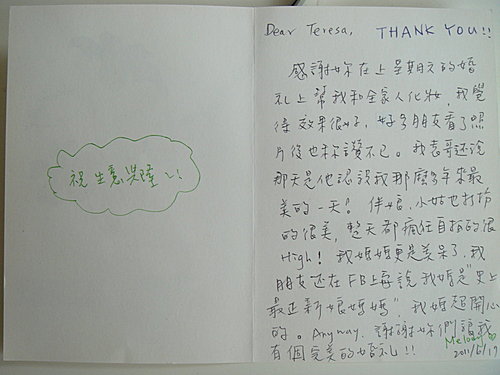 祝 生意興隆!!
Dear Teresa, THANK YOU!!
感謝妳在上星期六的婚
礼上幫我和全家人化妝,我覺
得效果很好,好多朋友看了照
片後也称讚不已。我表哥还說
那天是他認識我那麼多年來最
美的一天!伴娘、小姑也打扮
的很美,整天都瘋狂自拍的很
High!我媽媽更是美呆了,我
朋友还在FB上說我媽是"史上
最正新娘媽媽",我媽超開心
的。Anyway,謝謝妳們讓我
有個完美的婚礼!!
Melody
2011/5/19